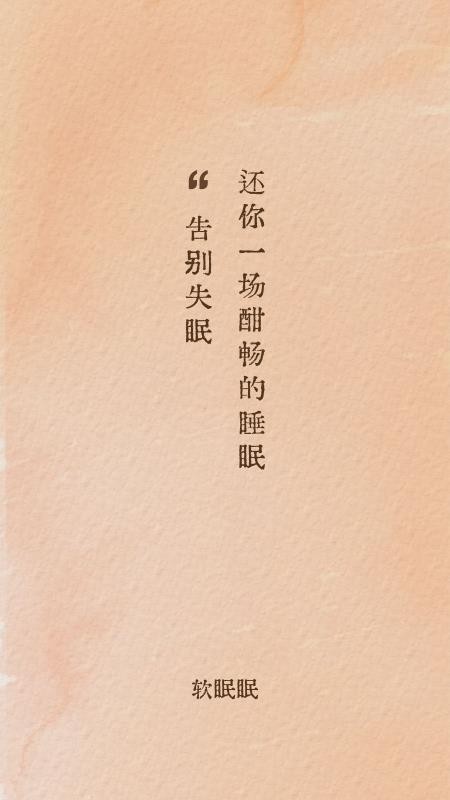 “告别失眠
还你一场酣畅的睡眠
软眠眠